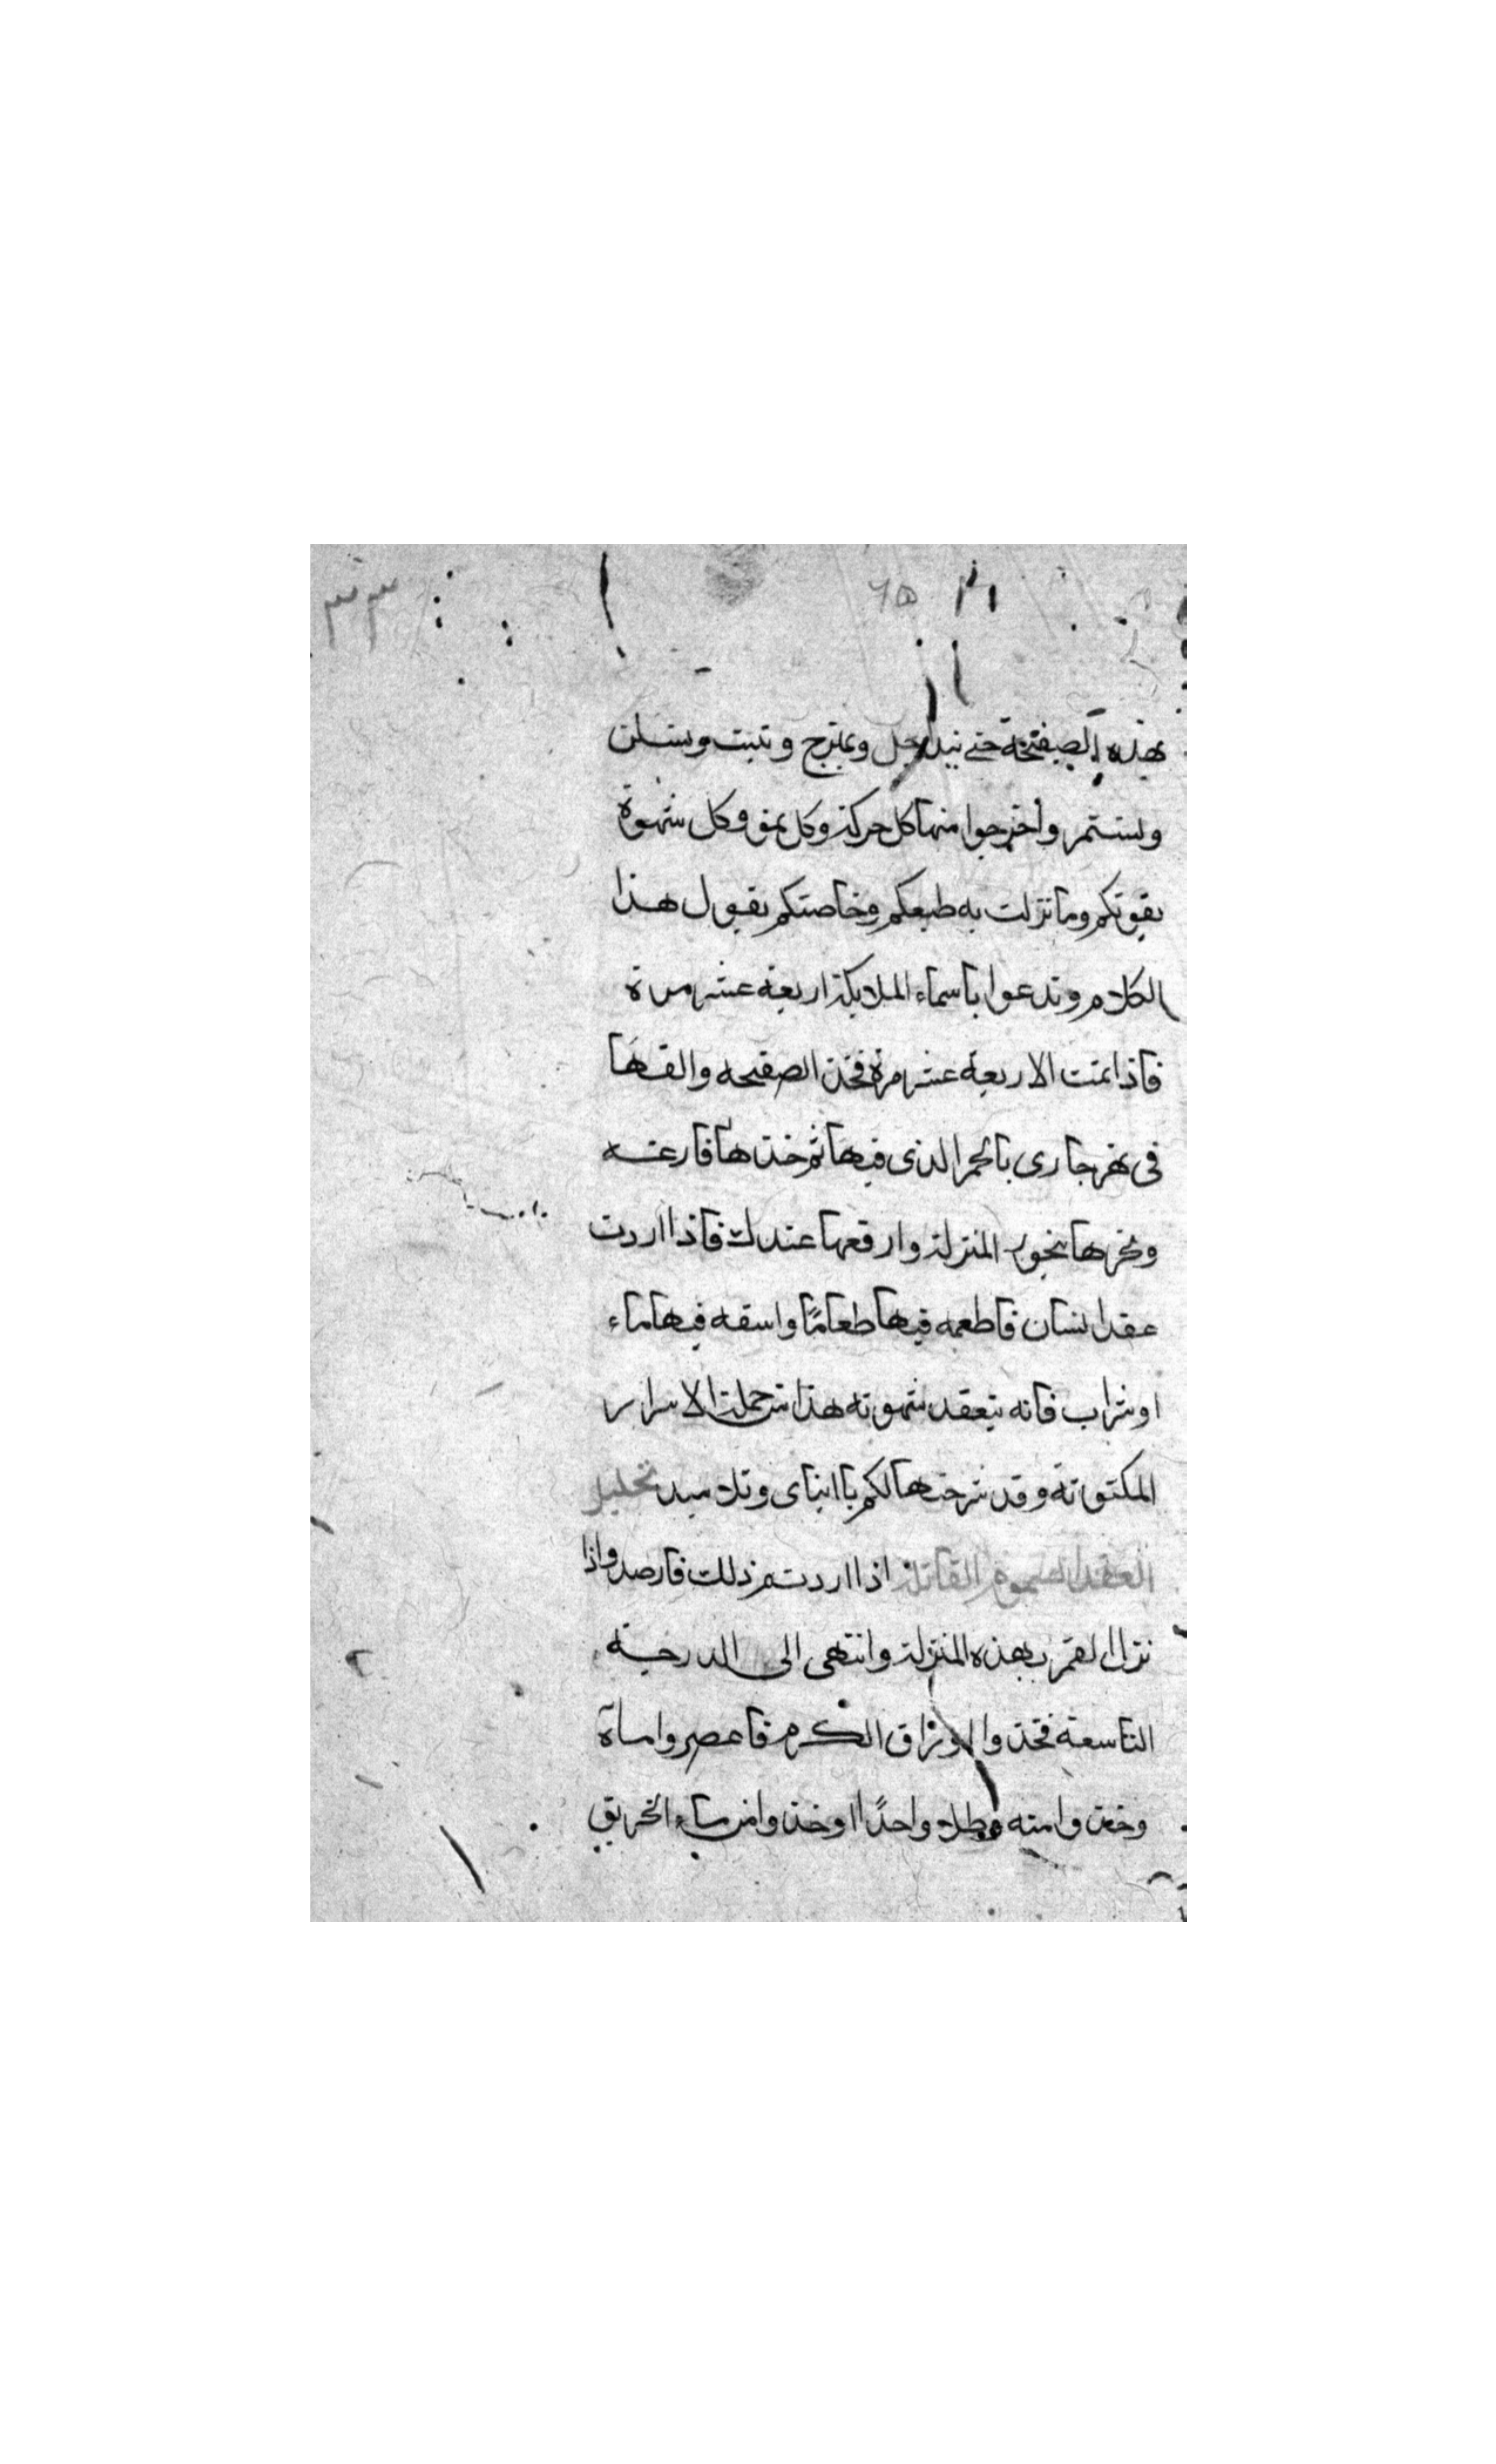 بهذه الصفيحة حتى تبدل وتمتزج وتثبت وتسكن
وتستمر واخرجوا منها كل حركة وكل نمو وكل شهوة
بقوتكم وما نزلت به طبعكم وخاصتكم يقول هذا
الكلام وتدعوا باسماء الملايكة اربعة عشر مرة
فاذا تمت الاربعة عشر مرة فخذ الصفيحه والقها
فى نهر جارى بالجمر الذى فيها ثم خذها فارغه
وبخرها ببخور المنزلة وارفعها عندك فاذا اردت
عقد انسان فاطعمه فيها طعامًا واسقه فيها ماء
او شراب فانه يتعقد شهوته هذا من جملة الاسرار
المكتوتة وقد شرحتها لكم يا ابناى وتلاميد تحليل
العقد السموم القاتلة اذا اردتم ذلك فارصدوا اذا
نزل القمر بهذه المنزلة وانتهى الى الدرجة
التاسعة فخذوا اوراق الكرم فاعصروا ماة
وخذوا منه رطلا واحدًا وخذوا من ماء الخريق